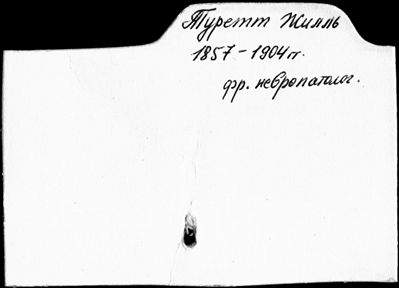 Туретт Жилль
1857-1904 гг.
фр. невропатолог.